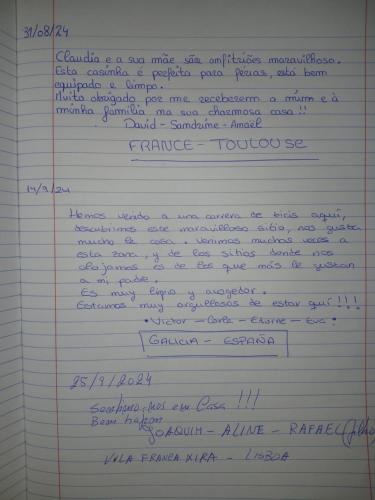 31/08/24
Claudia e a sua mãe são anfitriões maravilhoso.
Esta casinha é perfeita para férias, está bem
equipado e limpo.
Muito obrigado por me receberem a mim e à
minha família na sua charmosa casa !!
David - Samdrine - Amaël
FRANCE - TOULOUSE
14/9/24
Hemos venido a una carrera de bicis aquí,
descubrimos este maravilloso sitio, nos gusta
mucho la casa. Venimos muchas veces a
esta zona, y de los sitios donde nos
alojamos es de los que más le gustan
a mi padre.
Es muy lipio y acogedor.
Estamos muy orgullosas de estar quí !!!
• Victor - Carla - Eturne - Eva •
GALICIA - ESPAÑA
25/9/2024
Sentimo-nos em Casa !!!
Bem hajam
JOAQUIM - ALINE - RAFAEL (filho)
VILA FRANCA XIRA - LISBOA